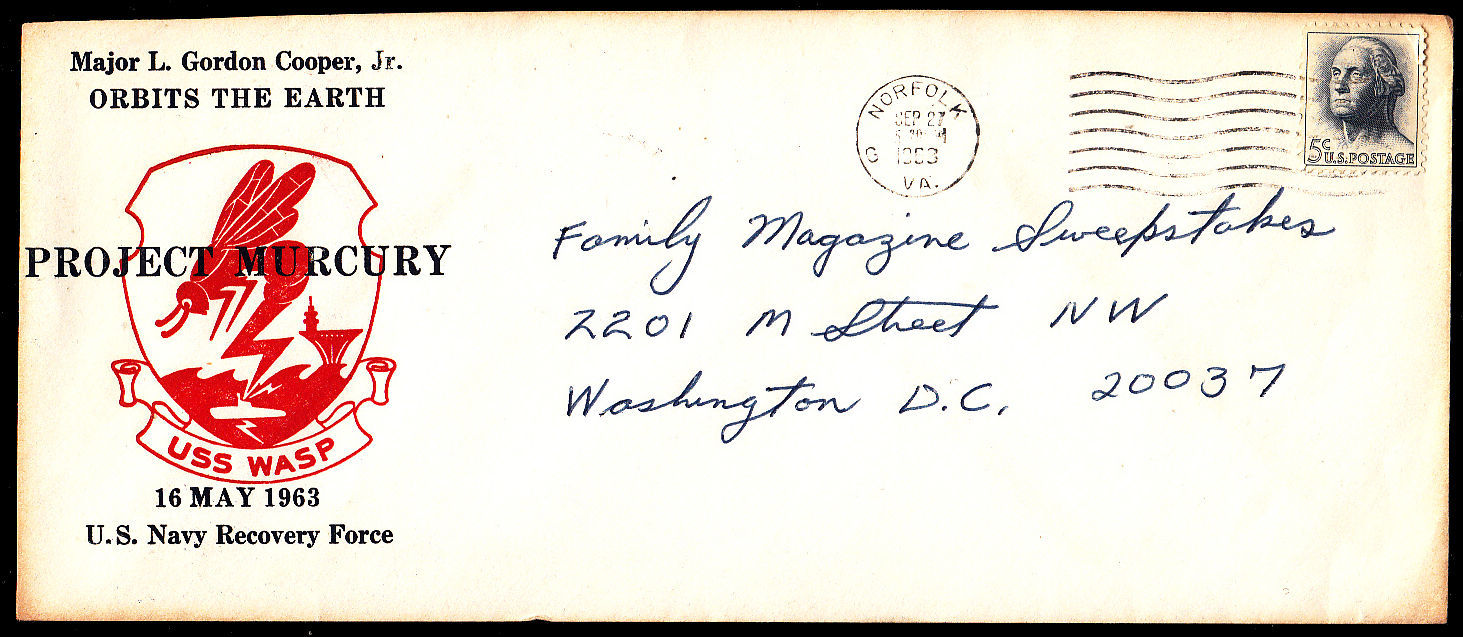 Major L. Gordon Cooper, Jr.
ORBITS THE EARTH
PROJECT MURCURY
USS WASP
16 MAY 1963
U.S. Navy Recovery Force
NORFOLK
SEP 27
1963
G
VA.
5c
U.S. POSTAGE
Family Magazine Sweepstakes
2201 M Street NW
Washington D.C. 20037